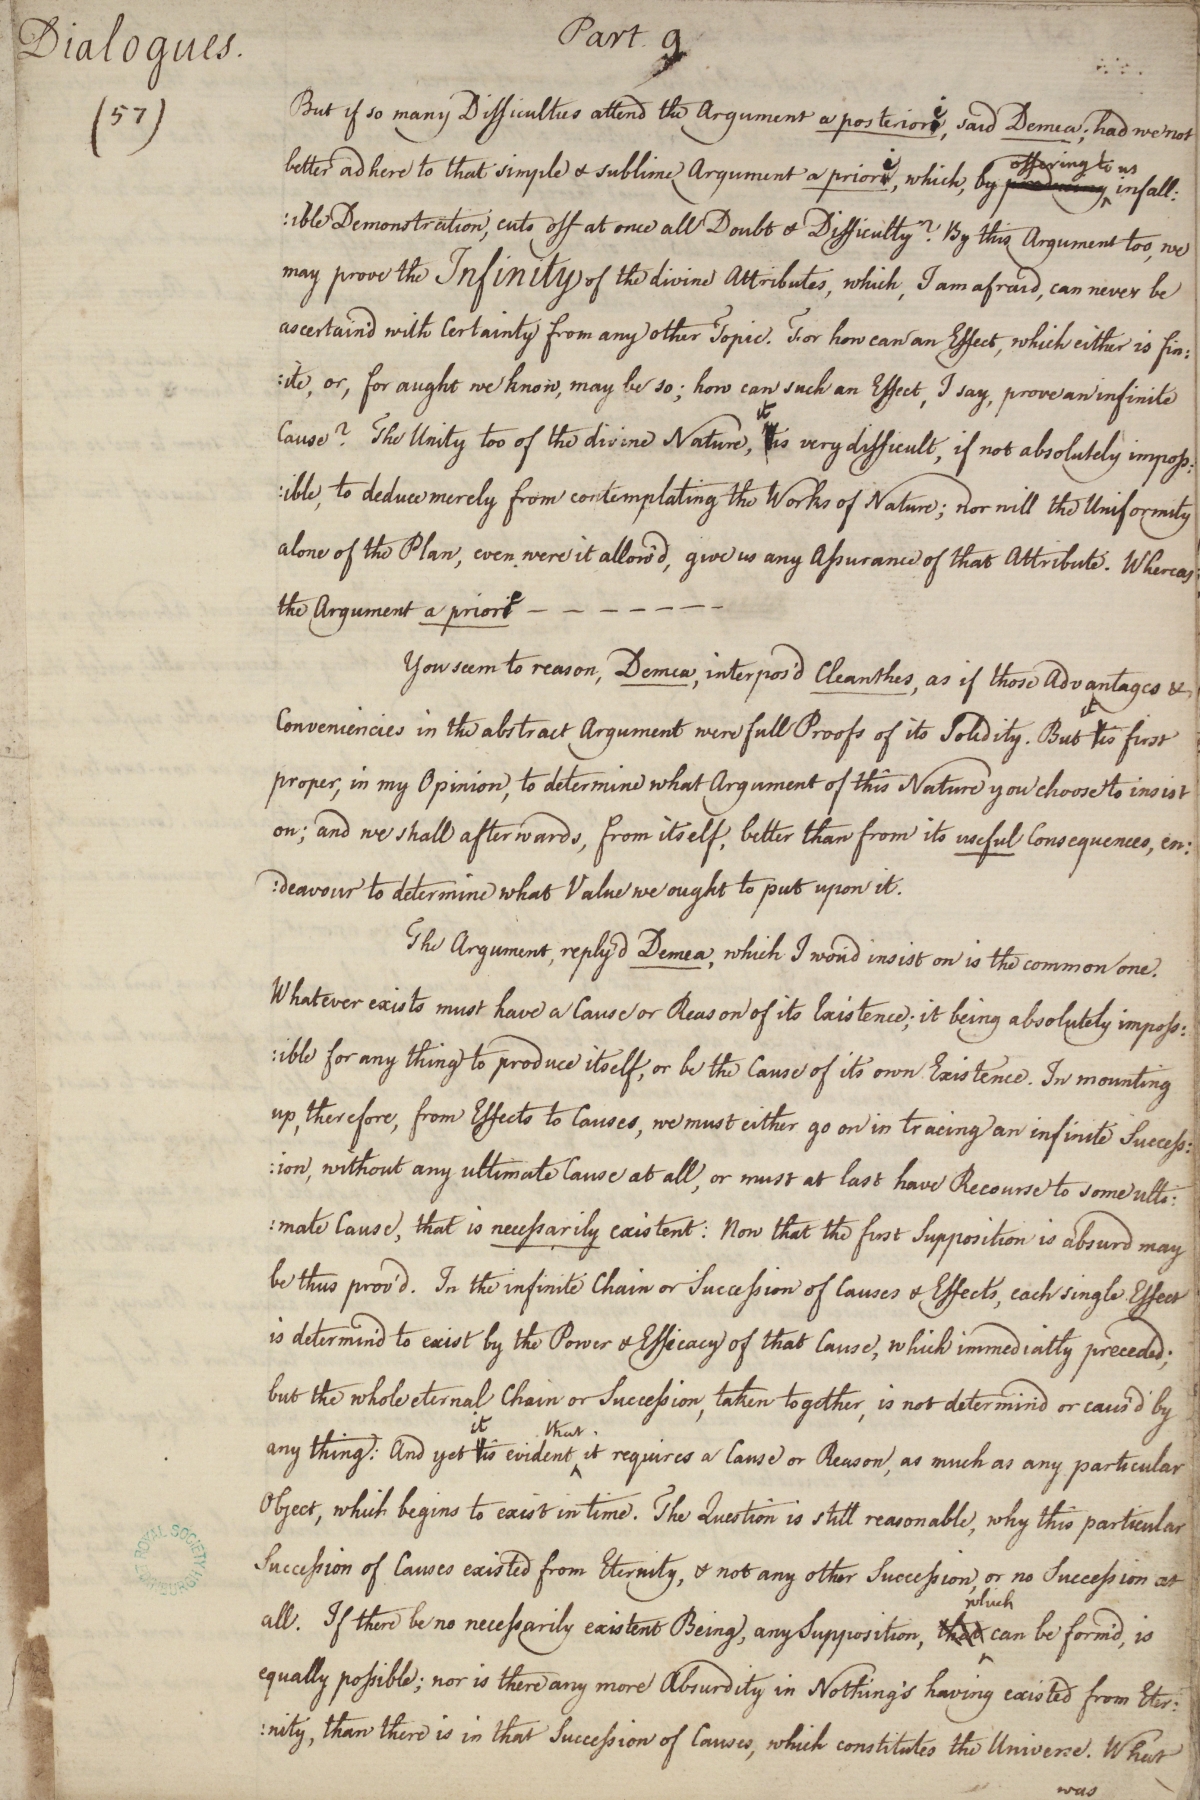 Dialogues.
Part. 9
(57)
But if so many Difficulties attend the Argument a posteriori, said Demea; had we not
better adhere to that simple & sublime Argument a priori, which, by
offering to us
infall:
:ible Demonstration, cuts off at once all Doubt & Difficulty? By this Argument too, we
may prove the Infinity of the divine Attributes, which, I am afraid, can never be
ascertain'd with Certainty from any other Topic. For how can an Effect, which either is fin:
:ite, or, for aught we know, may be so; how can such an Effect, I say, prove an infinite
Cause? The Unity too of the divine Nature, it is very difficult, if not absolutely imposs:
:ible, to deduce merely from contemplating the Works of Nature; nor will the Uniformity
alone of the Plan, even were it allow'd, give us any Assurance of that Attribute. Whereas
the Argument a priori - - - - - - - -
You seem to reason, Demea, interpos'd Cleanthes, as if those Advantages &
Conveniencies in the abstract Argument were full Proofs of its Solidity. But it is first
proper, in my Opinion, to determine what Argument of this Nature you choose to insist
on; and we shall afterwards, from itself, better than from its useful Consequences, en:
:deavour to determine what Value we ought to put upon it.
The Argument, reply'd Demea, which I wou'd insist on is the common one.
Whatever exists must have a Cause or Reason of its Existence; it being absolutely imposs:
:ible for any thing to produce itself, or be the Cause of its own Existence. In mounting
up, therefore, from Effects to Causes, we must either go on in tracing an infinite Success:
:ion, without any ultimate Cause at all, or must at last have Recourse to some ulti:
:mate Cause, that is necessarily existent: Now that the first Supposition is absurd may
be thus prov'd. In the infinite Chain or Succession of Causes & Effects, each single Effect
is determin'd to exist by the Power & Efficacy of that Cause, which immediatly preceded;
but the whole eternal Chain or Succession, taken together, is not determin'd or caus'd by
any thing: And yet it is evident that it requires a Cause or Reason, as much as any particular
Object, which begins to exist in time. The Question is still reasonable, why this particular
Succession of Causes existed from Eternity, & not any other Succession, or no Succession at
all. If there be no necessarily existent Being, any Supposition, that
which
can be form'd, is
equally possible; nor is there any more Absurdity in Nothing's having existed from Eter:
:nity, than there is in that Succession of Causes, which constitutes the Universe. What
was
ROYAL SOCIETY
EDINBURGH